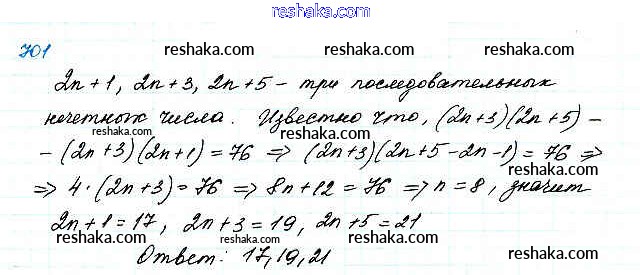 reshaka.com
701 reshaka.com reshaka.com
2n+1, 2n+3, 2n+5 - три последовательных
нечетных числа. Известно что, (2n+3)(2n+5) -
reshaka.com reshaka.com
- (2n+3)(2n+1) = 76 ⇒ (2n+3)(2n+5-2n-1) = 76 ⇒
reshaka.com reshaka.com
⇒ 4·(2n+3) = 76 ⇒ 8n+12 = 76 ⇒ n = 8, значит
reshaka.com reshaka.com
2n+1 = 17, 2n+3 = 19, 2n+5 = 21
reshaka.com reshaka.com reshaka.com
Ответ: 17, 19, 21